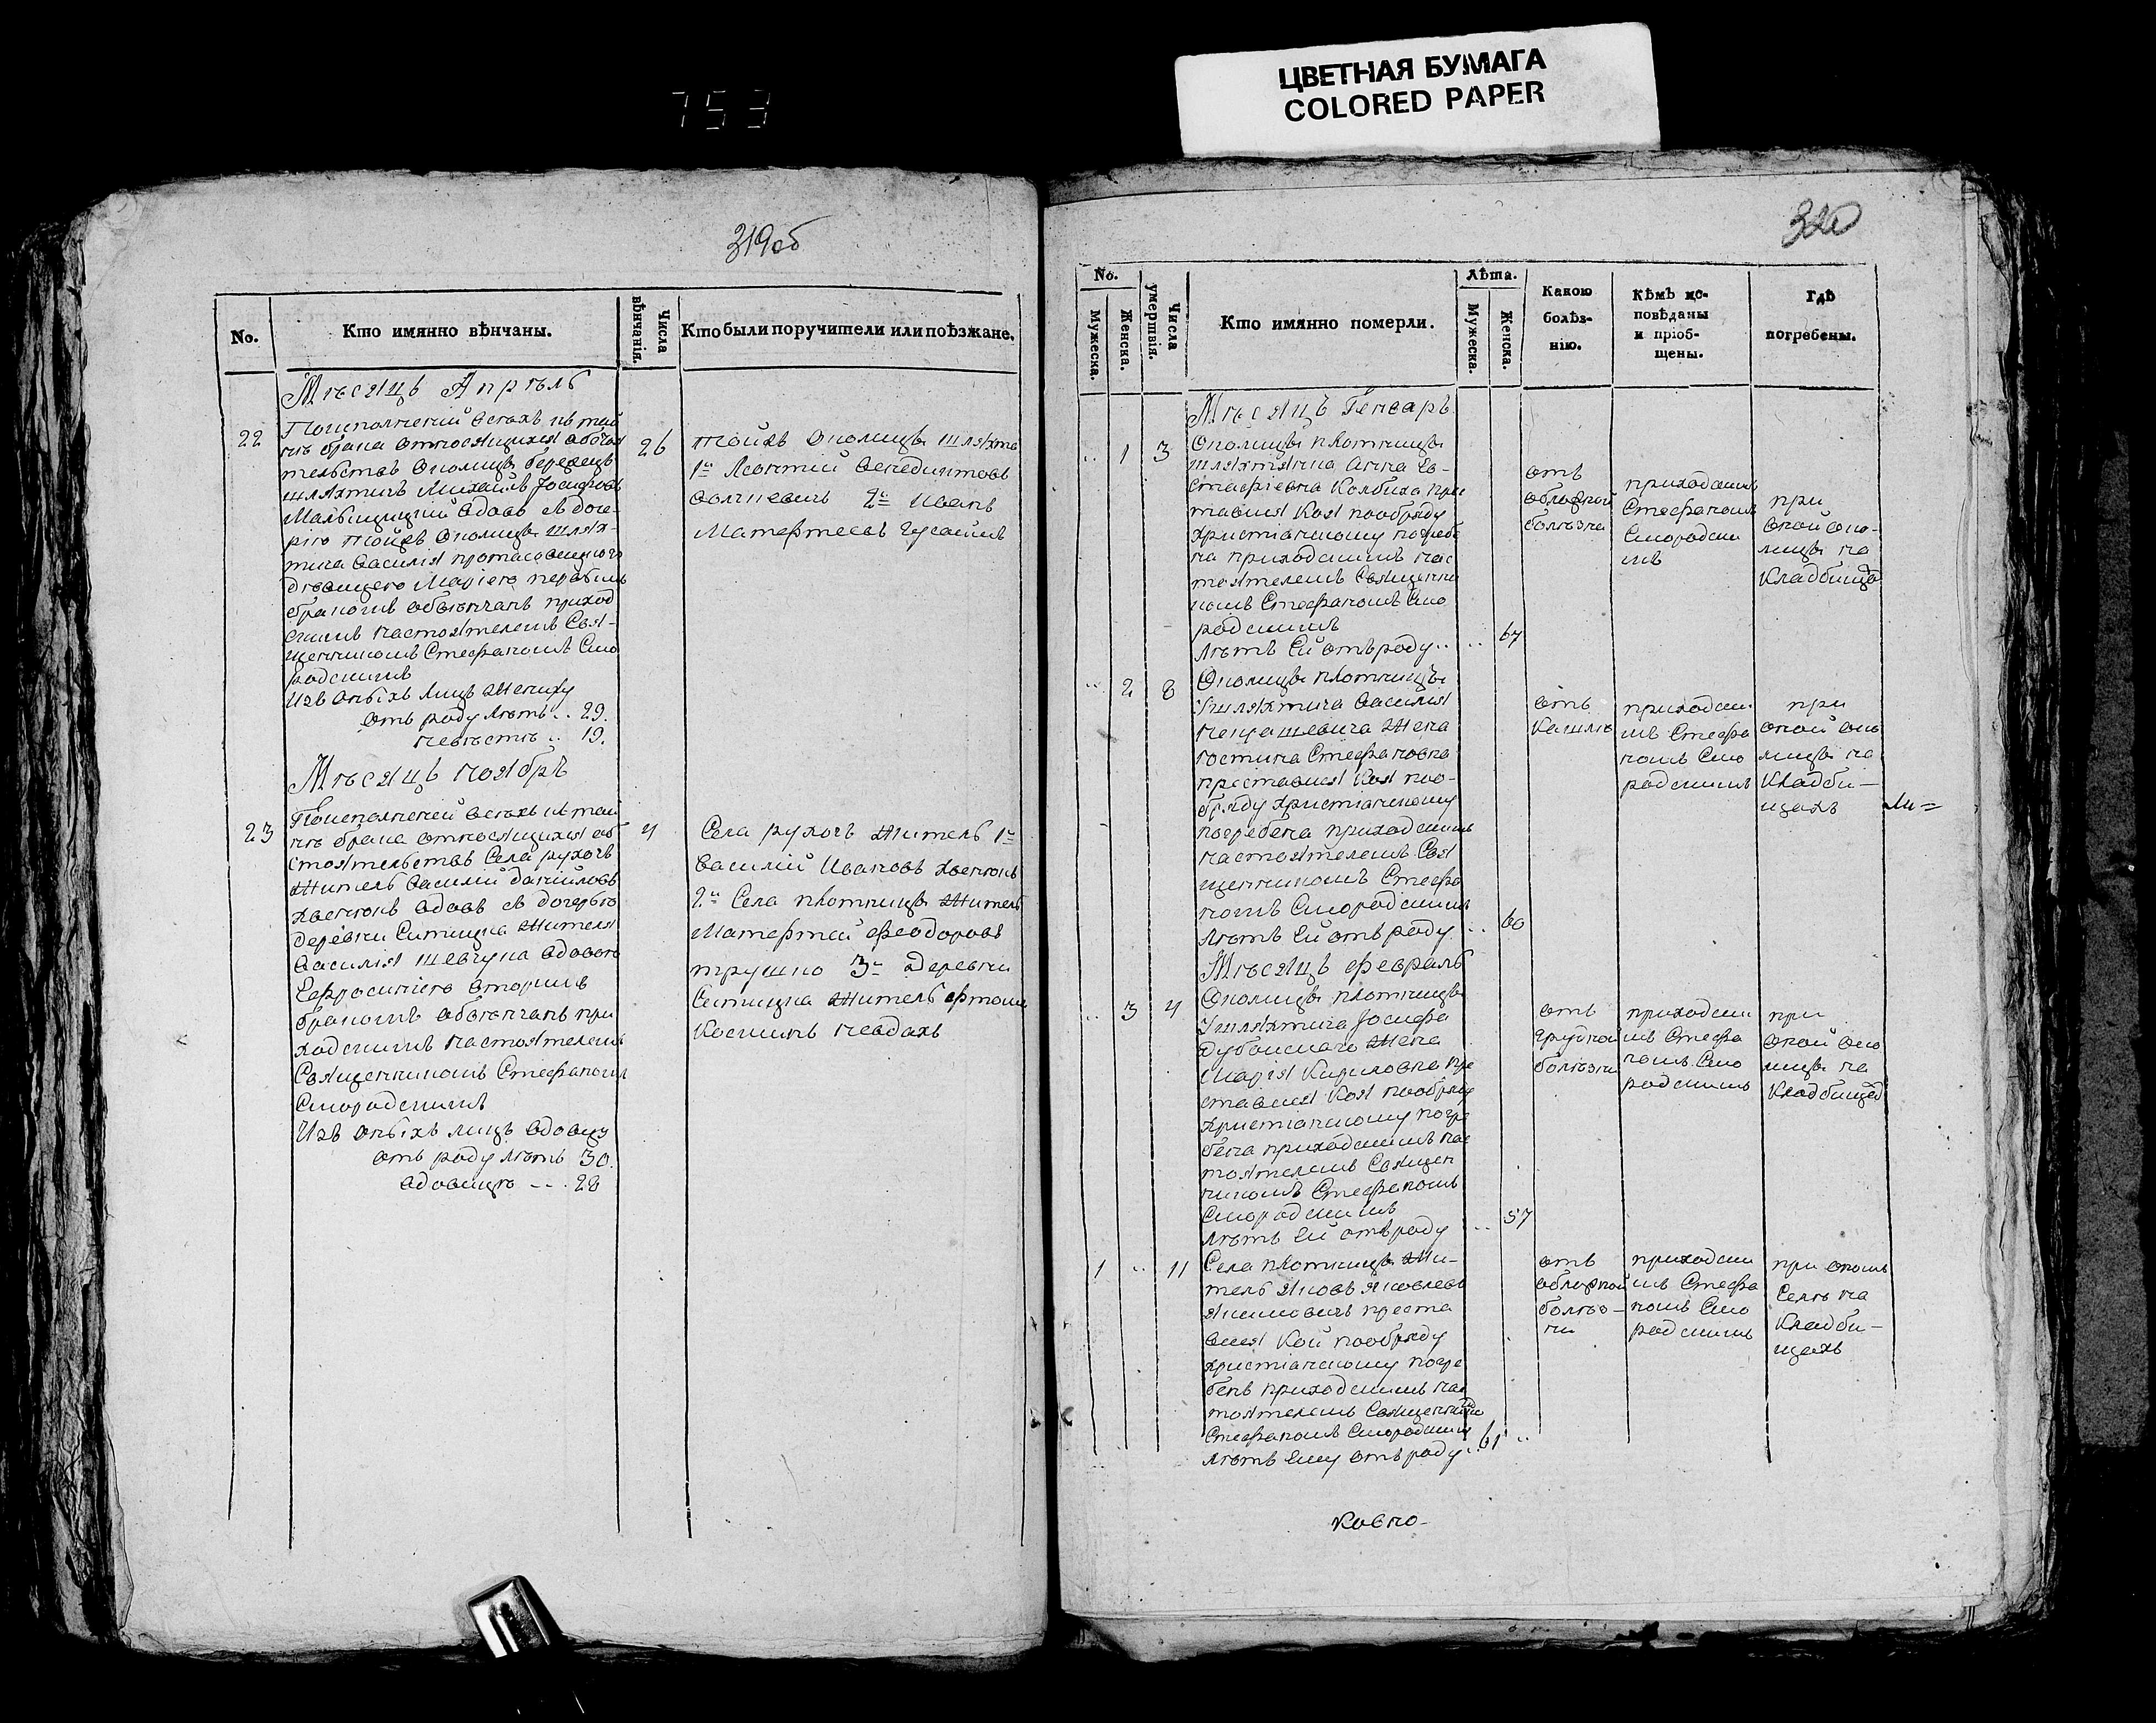 ЦВЕТНАЯ БУМАГА
COLORED PAPER
753
319об
No.
Кто имянно вѣнчаны.
Числа вѣнчанія.
Кто были поручители или поѣзжане.
Мѣсяцъ Апрѣль
22
26
По исполненiй всѣхъ къ тай
нѣ брака относящихся обстоя
тельствъ Околицы Бережцъ
шляхтичъ Михайлъ Іосифовъ
вдовъ съ доче-
рію тойжъ Околицы шлях-
тича Василія
дѣвицею Маріею первымъ
бракомъ обвѣнчанъ приход
скимъ настоятелемъ Свя-
щенникомъ Стефаномъ Смо
родскимъ
Изъ оныхъ лицъ жениху
отъ роду лѣтъ .. 29.
невѣстѣ .. 19.
тойжъ Околицы шляхта
1й Леонтій Венедиктовъ
2й Иванъ
Матефеевъ
Мѣсяцъ Ноябрь
23
4
По исполненiй всѣхъ къ тай
нѣ брака относящихся об
стоятельствъ Села Рухочъ
житель Василій Данiиловъ
вдовъ съ дочерью
деревни Ситицка жителя
Василія Шевчука вдовою
Ефросинiею вторымъ
бракомъ обвѣнчанъ при
ходскимъ настоятелемъ
Священникомъ Стефаномъ
Смородскимъ
Изъ оныхъ лицъ вдовцу
отъ роду лѣтъ 30.
вдовицѣ --. 28
Села Рухочъ житель 1й
Василій Ивановъ
2й Села Плотницы житель
Матефтей Феодоровъ
Трушко 3й деревни
Ситицка житель
320
No.
Мужеска.
Женска.
Числа умертвія.
Кто имянно померли.
Лѣта.
Мужеска.
Женска.
Какою болѣз-
нію.
Кѣмъ ис-
повѣданы
и пріоб-
щены.
Гдѣ
погребены.
Мѣсяцъ Генварь
.. 1 3
Околицы Плотницы
шляхтянка Анна Ев-
стафiевна Колбиха прес
тавися Коя по обряду
христіанскому погребе
на приходскимъ нас
тоятелемъ Священни
комъ Стефаномъ Смо
родскимъ
лѣтъ Ей отъ роду .. .. 67
отъ
обложной
болѣзни
приходскимъ
Стефаномъ
Смородски
мъ
при
оной око-
лицы на
Кладбище
.. 2 8
Околицы Плотницы
Шляхтича Василія
жена
Іостина Стефановна
преставися Коя по о-
бряду христіанскому
погребена приходскимъ
настоятелемъ Свя
щенникомъ Стефа
номъ Смородскимъ
лѣтъ Ей отъ роду .. 60
отъ
Кашлю
приходски
мъ Стефа
номъ Смо
родскимъ
при
оной око
лицы на
Кладби-
щахъ
Мѣсяцъ Февраль
.. 3 4
Околицы Плотницы
Шляхтича Іосифа
Дубойскаго жена
Марія Кириловна пре
ставися Коя по обряду
христіанскому погре
бена приходскимъ нас
тоятелемъ Священ
никомъ Стефаномъ
Смородскимъ
лѣтъ Ей отъ роду .. 57
отъ
грудной
болѣзни
приходски
мъ Стефа
номъ Смо
родскимъ
при
оной око
лицы на
Кладбище
1 .. 11
Села Плотницы жи-
тель Яковъ Яковлевъ
преста
вися Кой по обряду
христіанскому погре
бенъ приходскимъ нас
тоятелемъ Священникомъ
Стефаномъ Смородскимъ
лѣтъ Ему отъ роду .. 61 ..
отъ
обложной
болѣз-
ни
приходски
мъ Стефа
номъ Смо
родскимъ
при ономъ
Селѣ на
Кладби-
щахъ